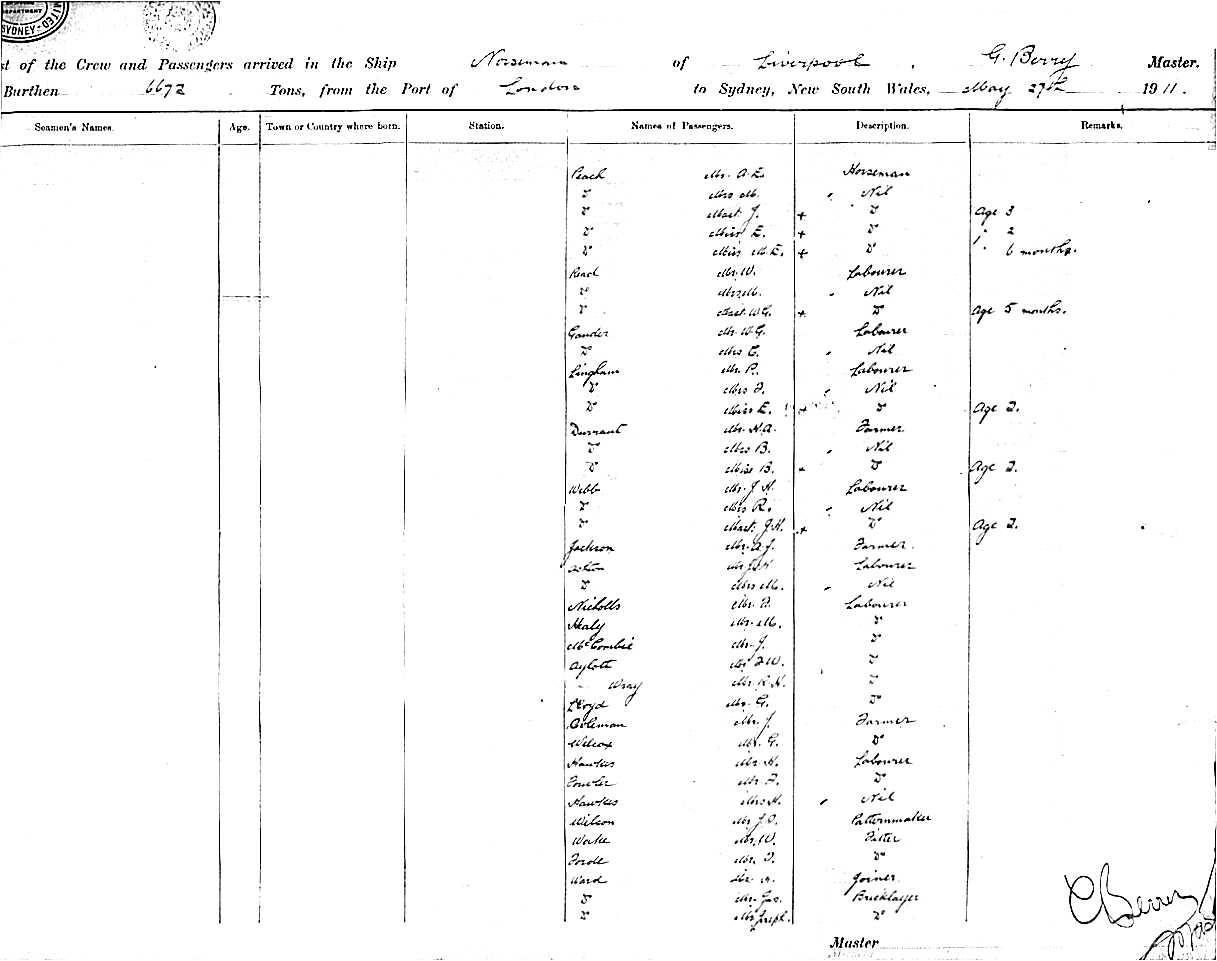 DEPARTMENT
SYDNEY
LIMITED
st of the Crew and Passengers arrived in the Ship Norseman of Liverpool, G. Berry Master.
Burthen 6672 Tons, from the Port of London to Sydney, New South Wales, May 27th 1911.
Seamen's Names. Age. Town or Country where born. Station. Names of Passengers. Description. Remarks.
Peach Mr. A.E. Horseman
Do Mrs M. " Nil
Do Mast. J. + Do Age 3
Do Miss E. + Do " 2
Do Miss M.E. + Do " 6 months.
Mr. W. Labourer
Do Mrs M. " Nil
Do Mast. W.G. + Do Age 5 months.
Gander Mr. W.G. Labourer
Do Mrs C. " Nil
Lingham Mr. P. Labourer
Do Mrs F. " Nil
Do Miss E. + Do Age 2.
Durrant Mr. H.A. Farmer
Do Mrs B. " Nil
Do Miss B. + Do Age 2.
Webb Mr. J.H. Labourer
Do Mrs R. " Nil
Do Mast. J.H. + Do Age 2.
Jackson Mr. A.J. Farmer.
Mr Labourer
Do Mrs M. " Nil
Nicholls Mr. F. Labourer
Healy Mr. M. Do
McCombie Mr. J. Do
Aylott Mr F.W. Do
Wray Mr. R.H. Do
Lloyd Mr. G. Do
Coleman Mr. J. Farmer
Wilcox Mr. G. Do
Hawkes Mr. H. Labourer
Fowler Mr. F. Do
Hawkes Mrs H. " Nil
Wilson Mr J.D. Patternmaker
Mr. W. Fitter
Forde Mr. F. Do
Ward Mr. Joiner
Do Mr. Jas. Bricklayer
Do Mr Joseph. Do
Master
G Berry